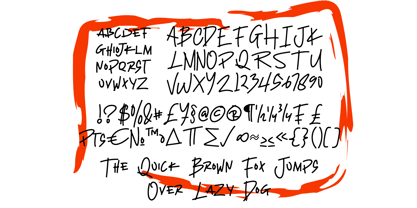 ABCDEF
GHIJKLM
NOPQRST
UVWXYZ
ABCDEFGHIJK
LMNOPQRSTU
VWXYZ1234567890
!?$%&#£¥§@©®¶½¼¾₣£
Pts€№™∂∆∏∑√∞≈≥≤«{}()[]
The Quick Brown Fox Jumps
Over Lazy Dog